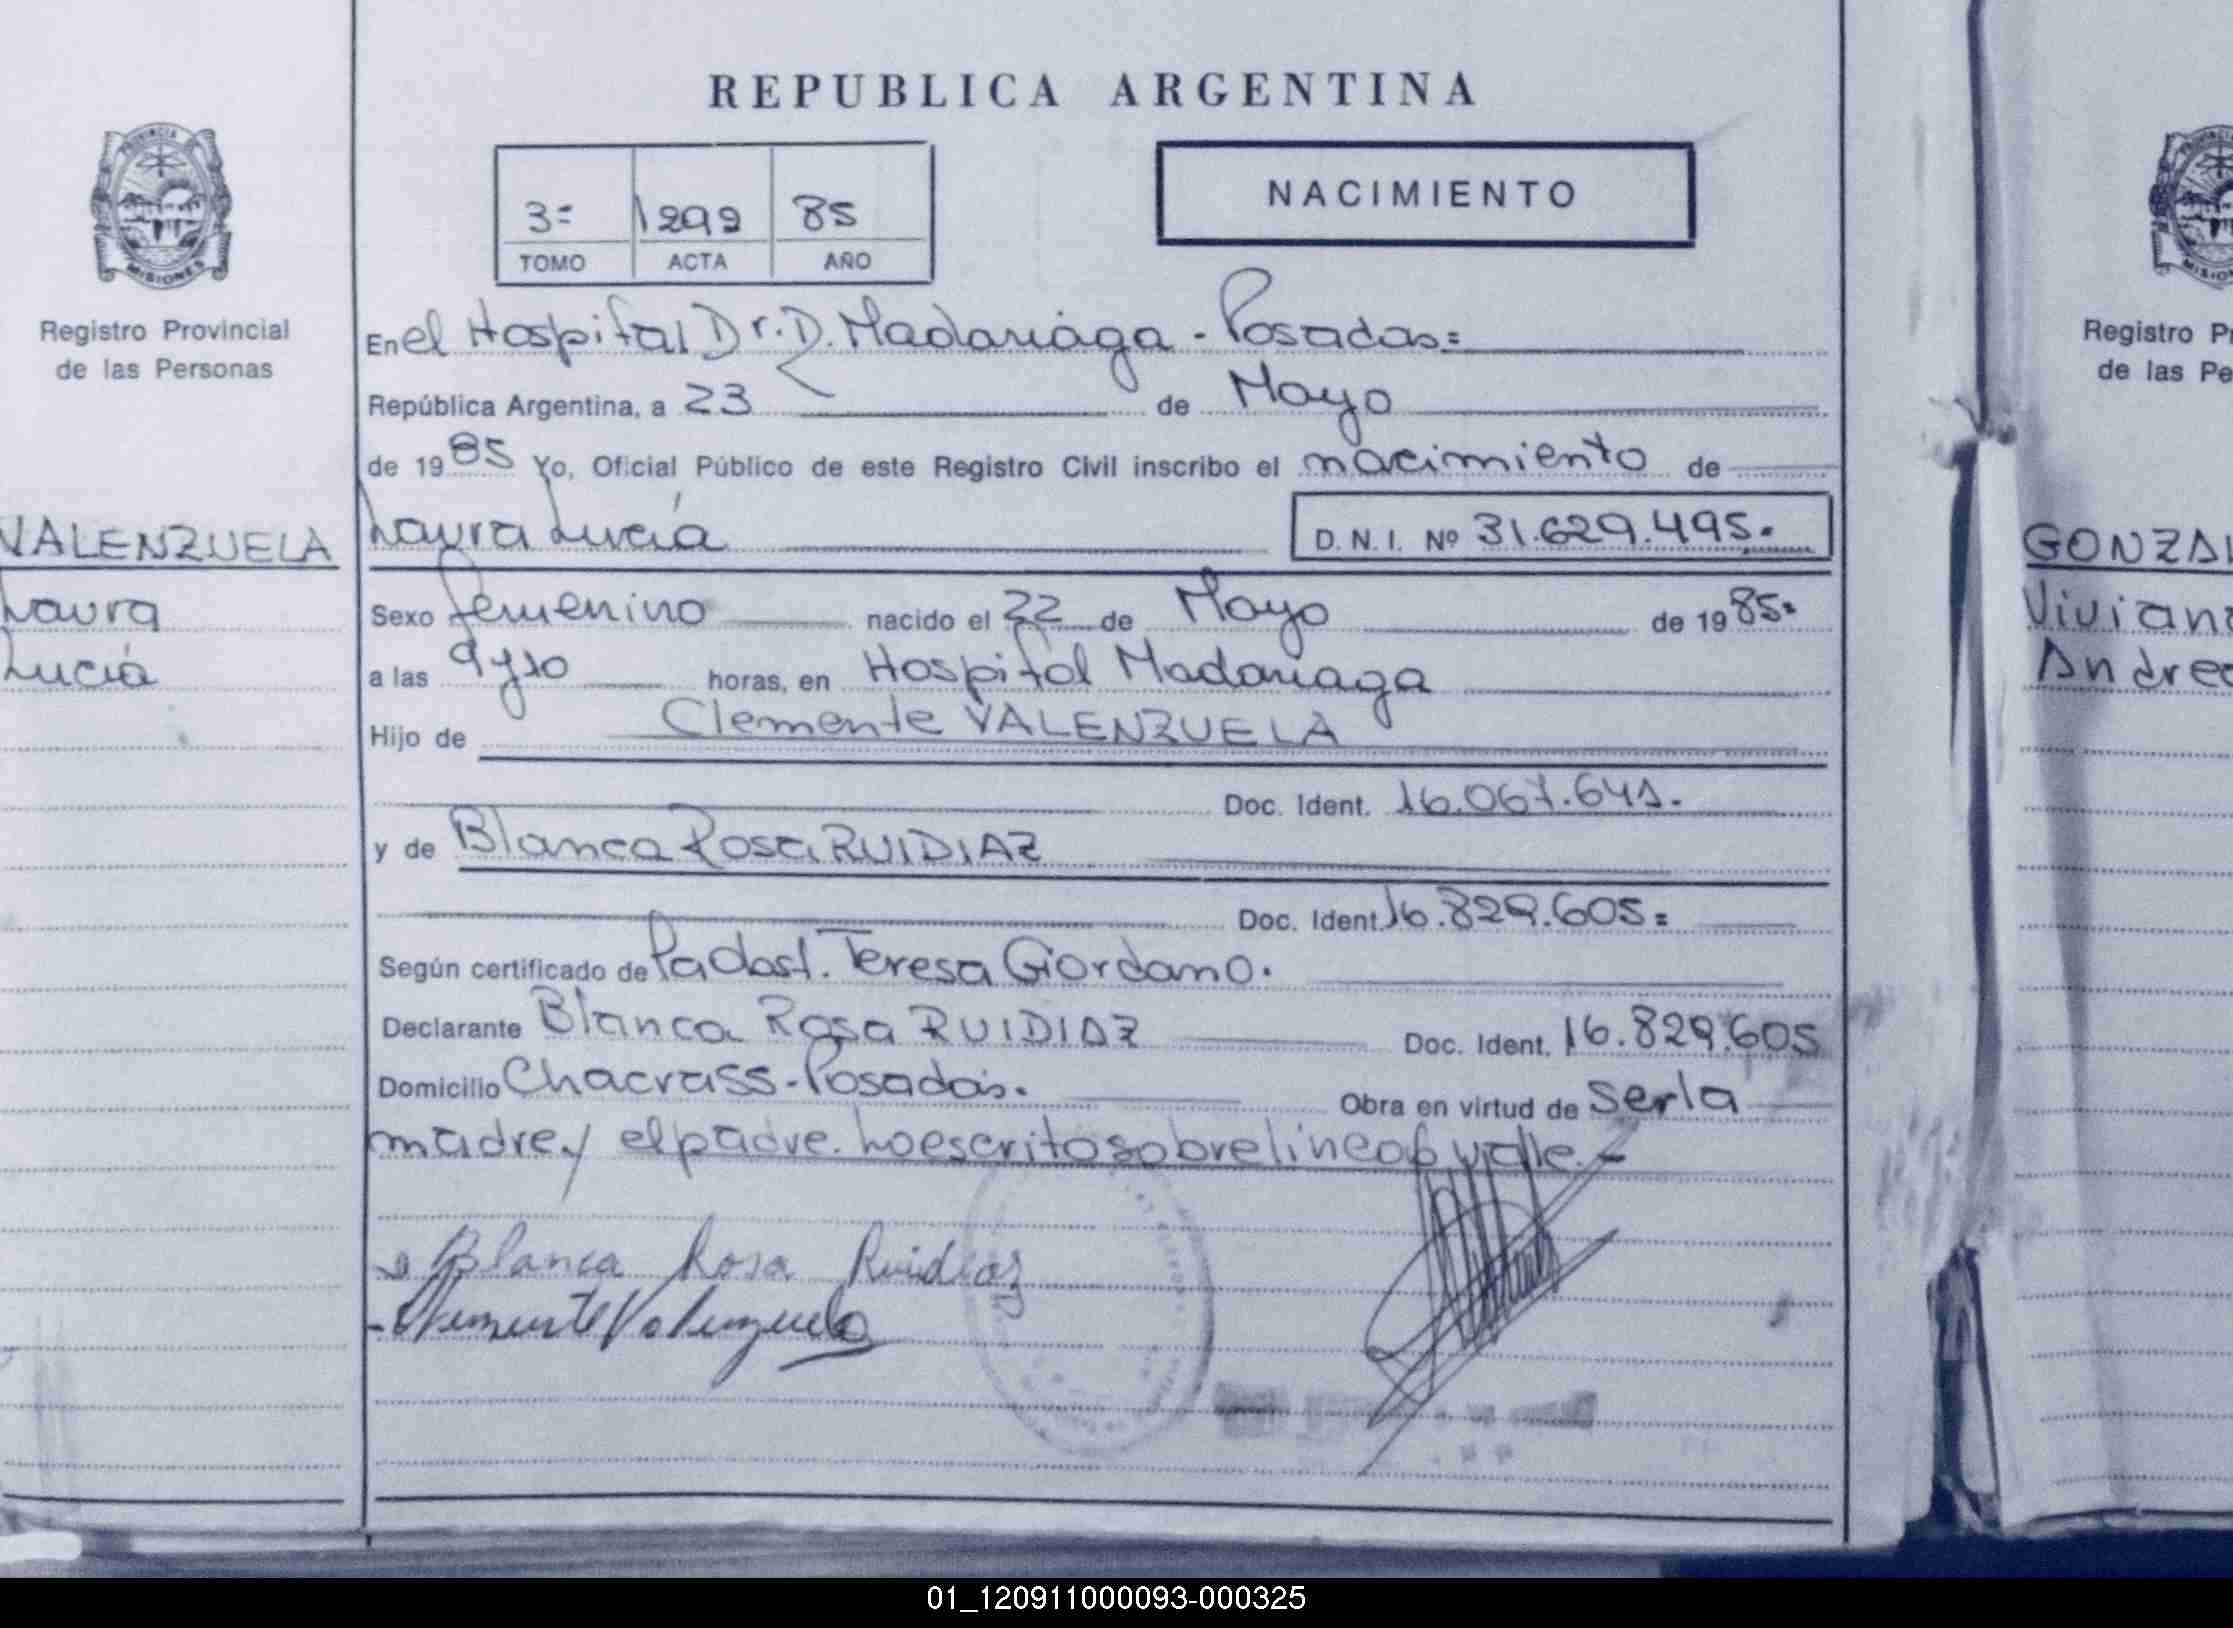 REPUBLICA ARGENTINA
PROVINCIA
MISIONES
Registro Provincial
de las Personas
3= 1292 85
TOMO ACTA AÑO
NACIMIENTO
En el Hospital Dr. D. Madariaga - Posadas=
República Argentina, a 23 de Mayo
de 1985 Yo, Oficial Público de este Registro Civil inscribo el nacimiento de
VALENZUELA
Laura Lucía
D. N. I. Nº 31.629.495.
Laura
Lucía
Sexo femenino nacido el 22 de Mayo de 1985=
a las 9 y 10 horas, en Hospital Madariaga
Hijo de Clemente VALENZUELA
Doc. Ident. 16.067.641.
y de Blanca Rosa RUIDIAZ
Doc. Ident. 16.829.605=
Según certificado de Teresa Giordano.
Declarante Blanca Rosa RUIDIAZ Doc. Ident. 16.829.605
Domicilio Posadas. Obra en virtud de ser la
madre y el padre. lo escrito sobre linea 6 vale.-
Blanca Rosa Ruidiaz
Clemente Valenzuela
Registro P
de las Pe
GONZA
Vivian
Andre
01_120911000093-000325